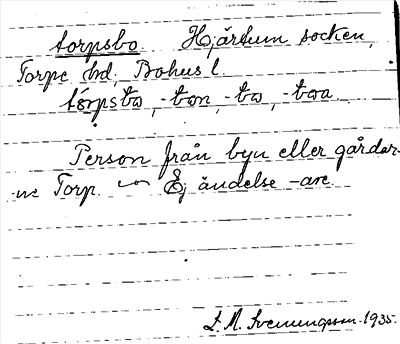 torpsbo. Hjärtum socken,
Torpe hd, Bohus l.
Person från byn eller gårdar-
ne Torp. ~ Ej ändelse -are.
L. M. Svenungsson 1935.